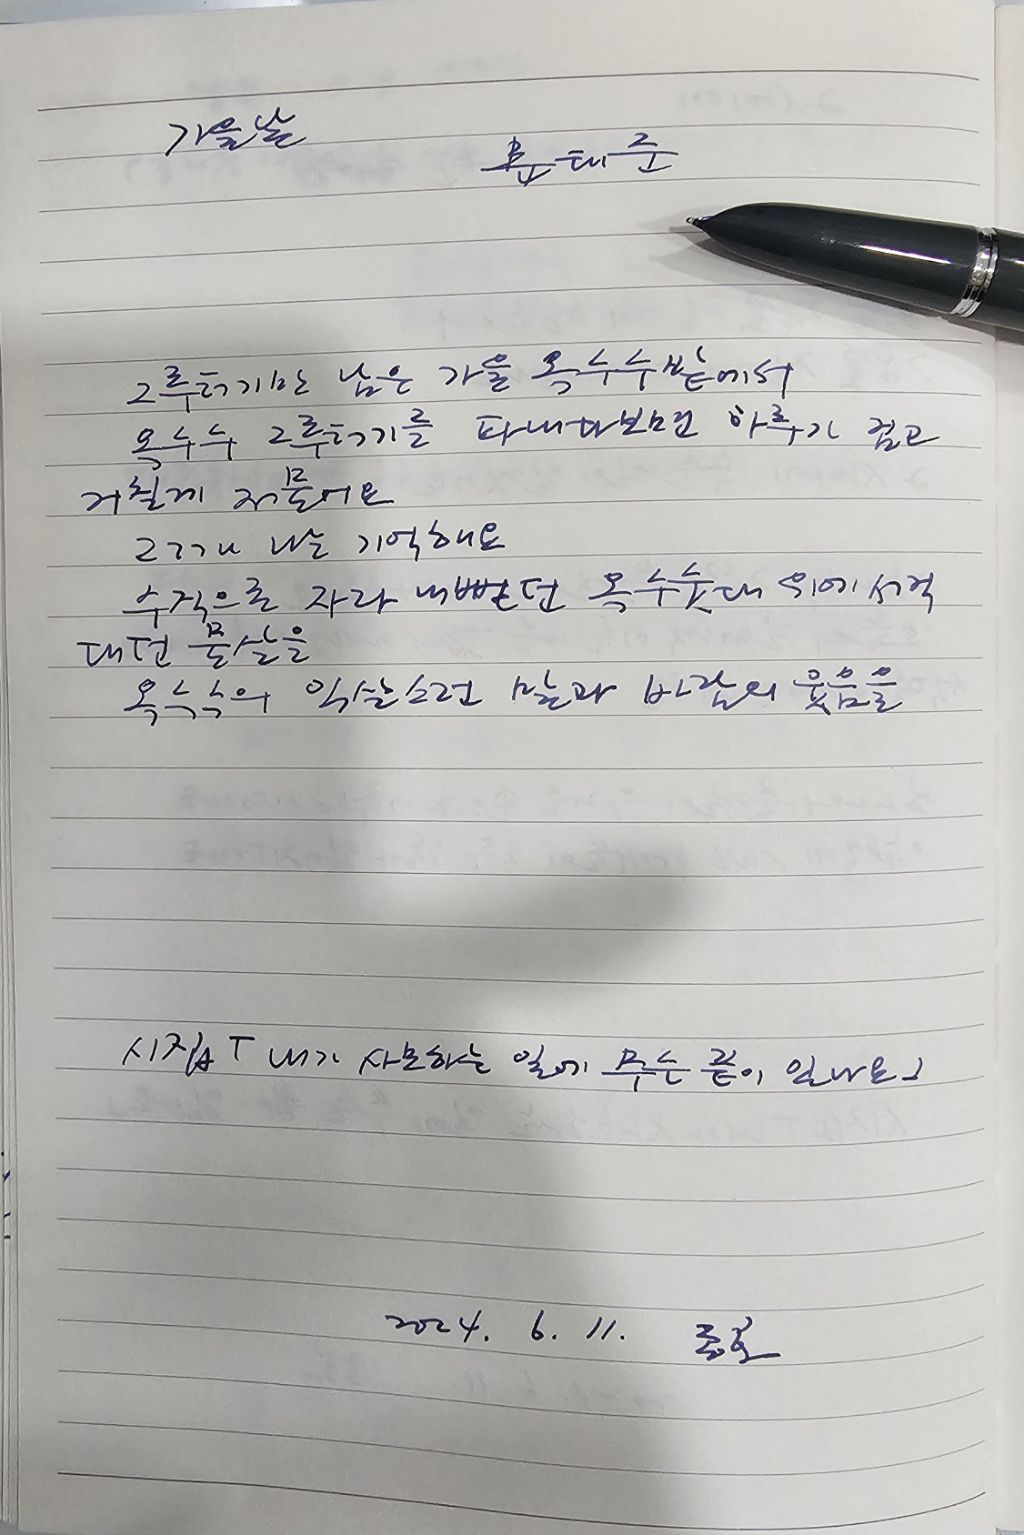 가을날
문태준
그루터기만 남은 가을 옥수수밭에서
옥수수 그루터기를 파내다보면 하루가 검고
거칠게 저물어요
그러나 나는 기억해요
수직으로 자라 내뻗던 옥수숫대 위에 서걱
대던 물살을
옥수수의 익살스런 말과 바람의 웃음을
시집 T 내가 사모하는 일에 무슨 끝이 있나요 J
2024. 6. 11.